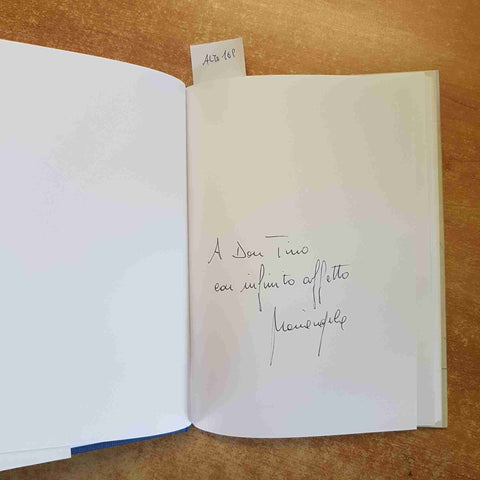 A Don Tino
con infinito affetto
Mariangela